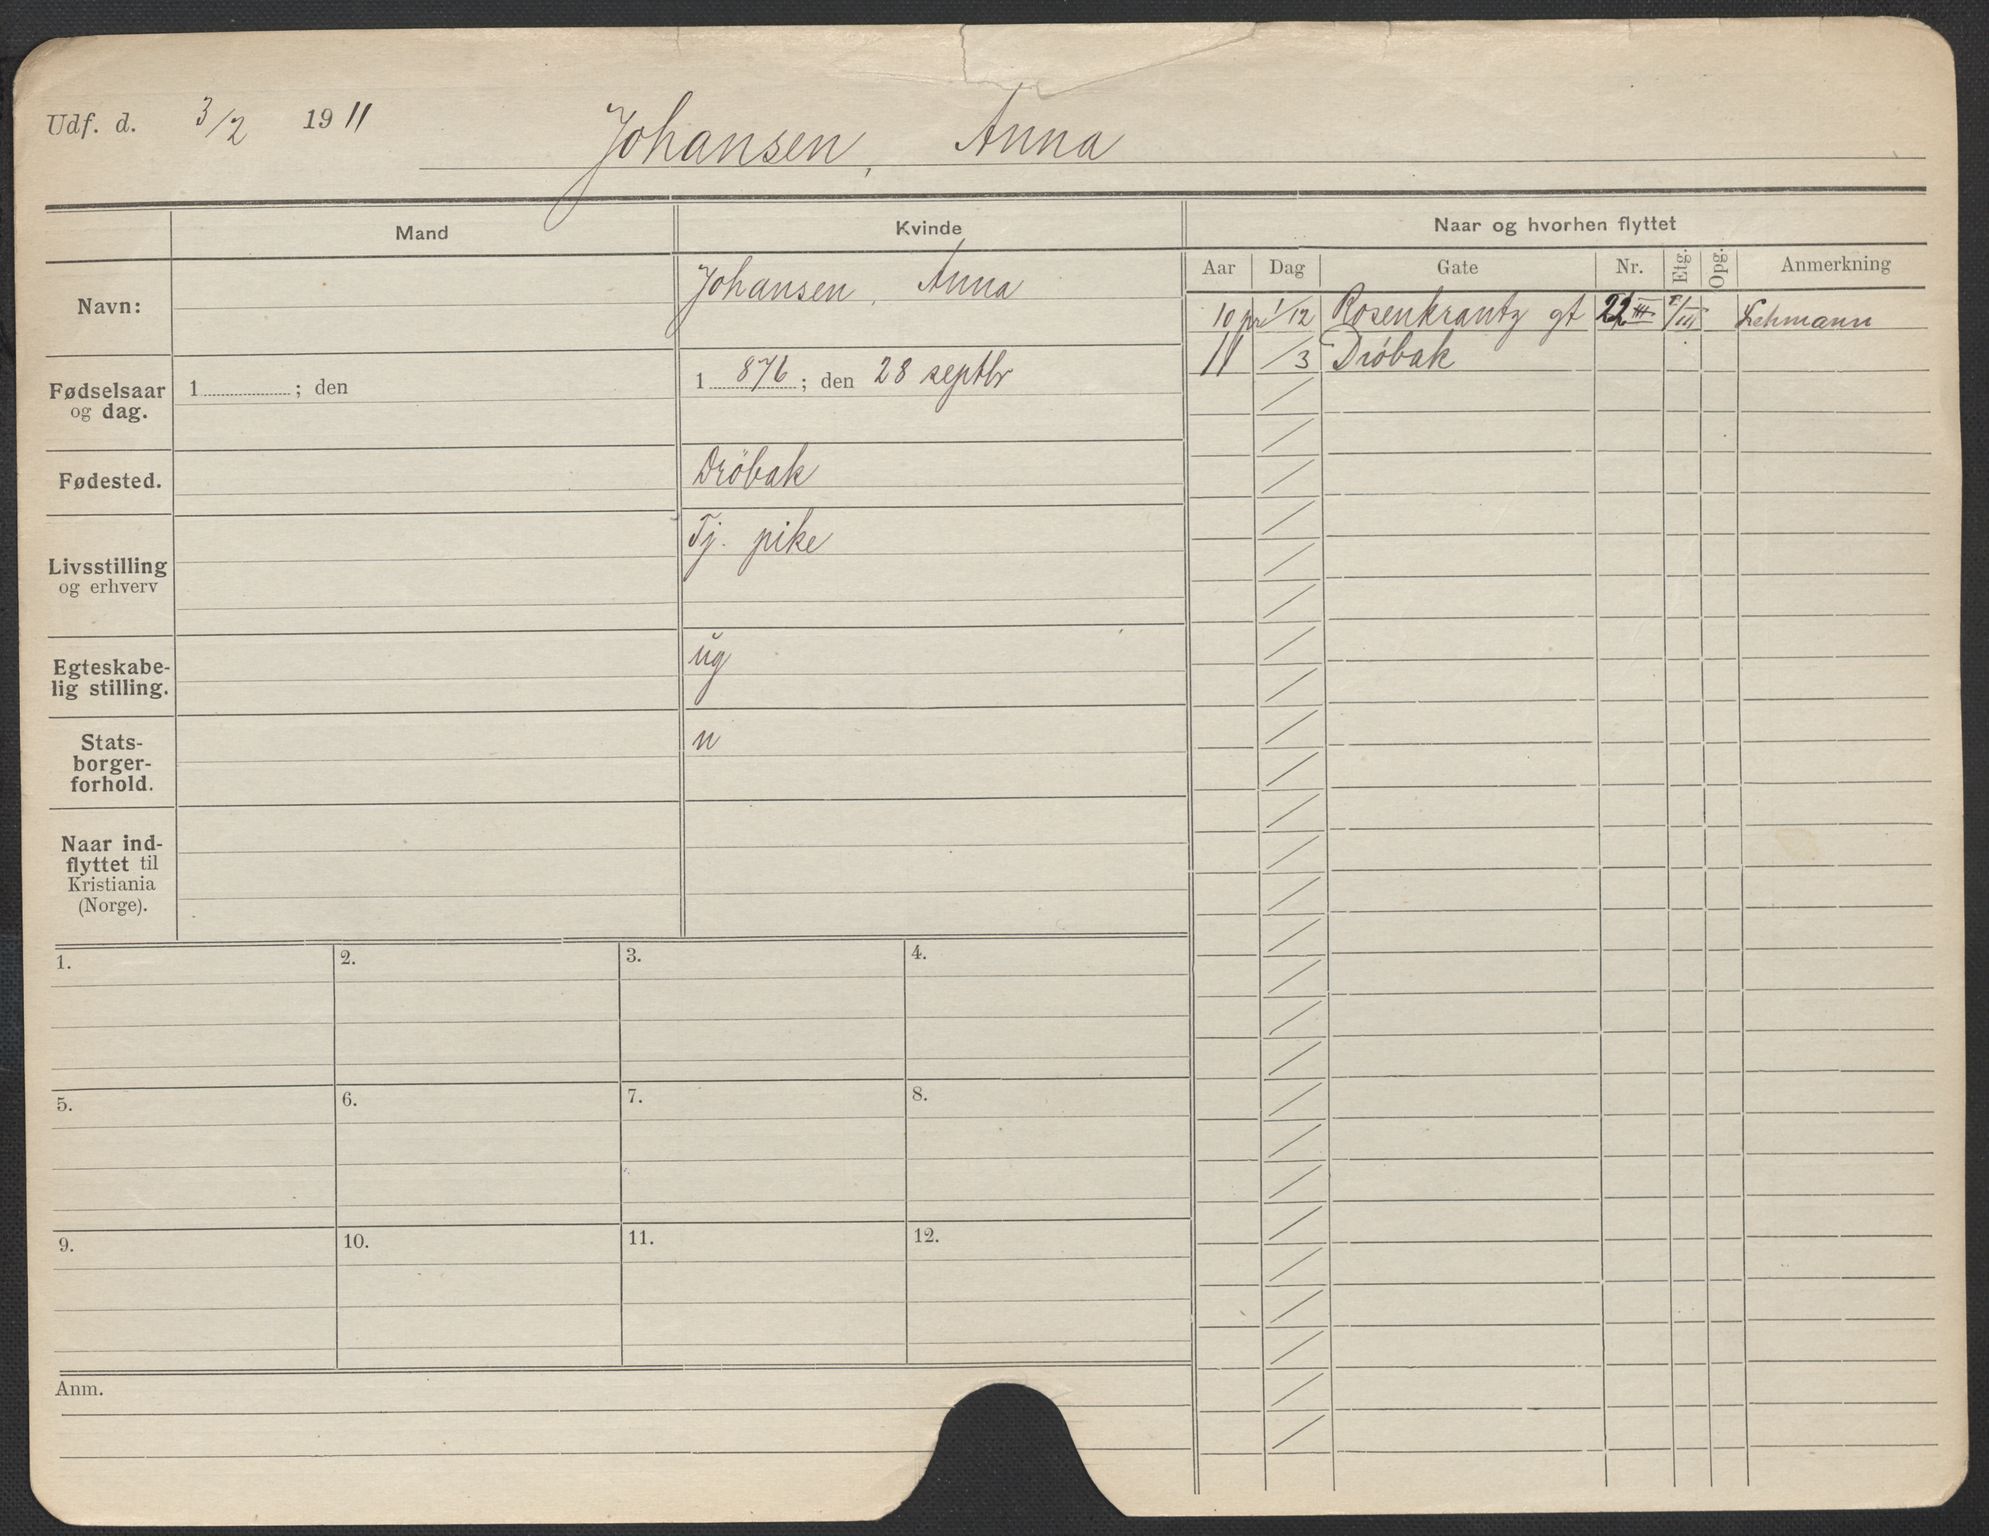 Udf. d. 3/2 1911 Johansen, Anna
Mand Kvinde Naar og hvorhen flyttet
Aar Dag Gate Nr. Etg. Opg. Anmerkning
Navn: Johansen, Anna
10 pr 1/12 Rosenkrantz gt 22 III Lehmann
11 /3 Drøbak
Fødselsaar og dag. 1 ; den 1 876 ; den 28 septbr
Fødested. Drøbak
Livsstilling og erhverv Tj. pike
Egteskabe-
lig stilling. ug
Stats-
borger-
forhold. n
Naar ind-
flyttet til
Kristiania
(Norge).
1. 2. 3. 4.
5. 6. 7. 8.
9. 10. 11. 12.
Anm.